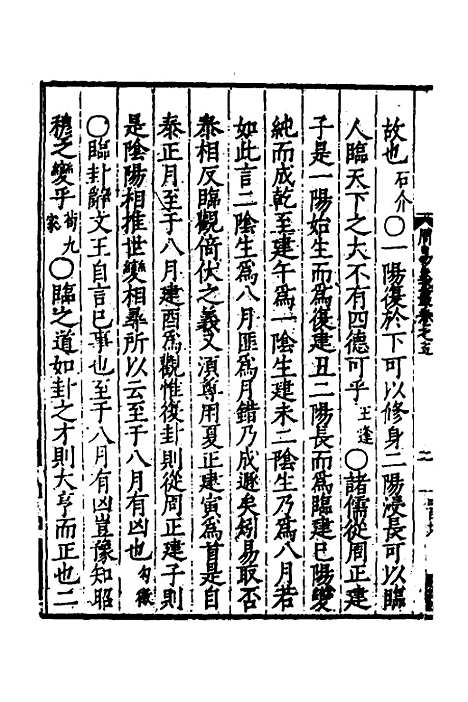 故也石介〇一陽復於下可以修身二陽浸長可以臨
人臨天下之大不有四德可乎王逢〇諸儒從周正建
子是一陽始生而爲復建丑二陽長而爲臨建巳陽變
純而成乾至建午爲一陰生建未二陰生乃爲八月若
如此言二陰生爲八月匪爲月錯乃成遯矣矧易取否
泰相反臨觀倚伏之義又湏尊用夏正建寅爲首是自
泰正月至于八月建酉爲觀惟復卦則從周正建子則
是陰陽相推世變相尋所以云至于八月有凶也句微
〇臨卦辭文王自言已事也至于八月有凶豈豫知昭
穆之變乎荀九家〇臨之道如卦之才則大亨而正也二
周易義叢卷之五